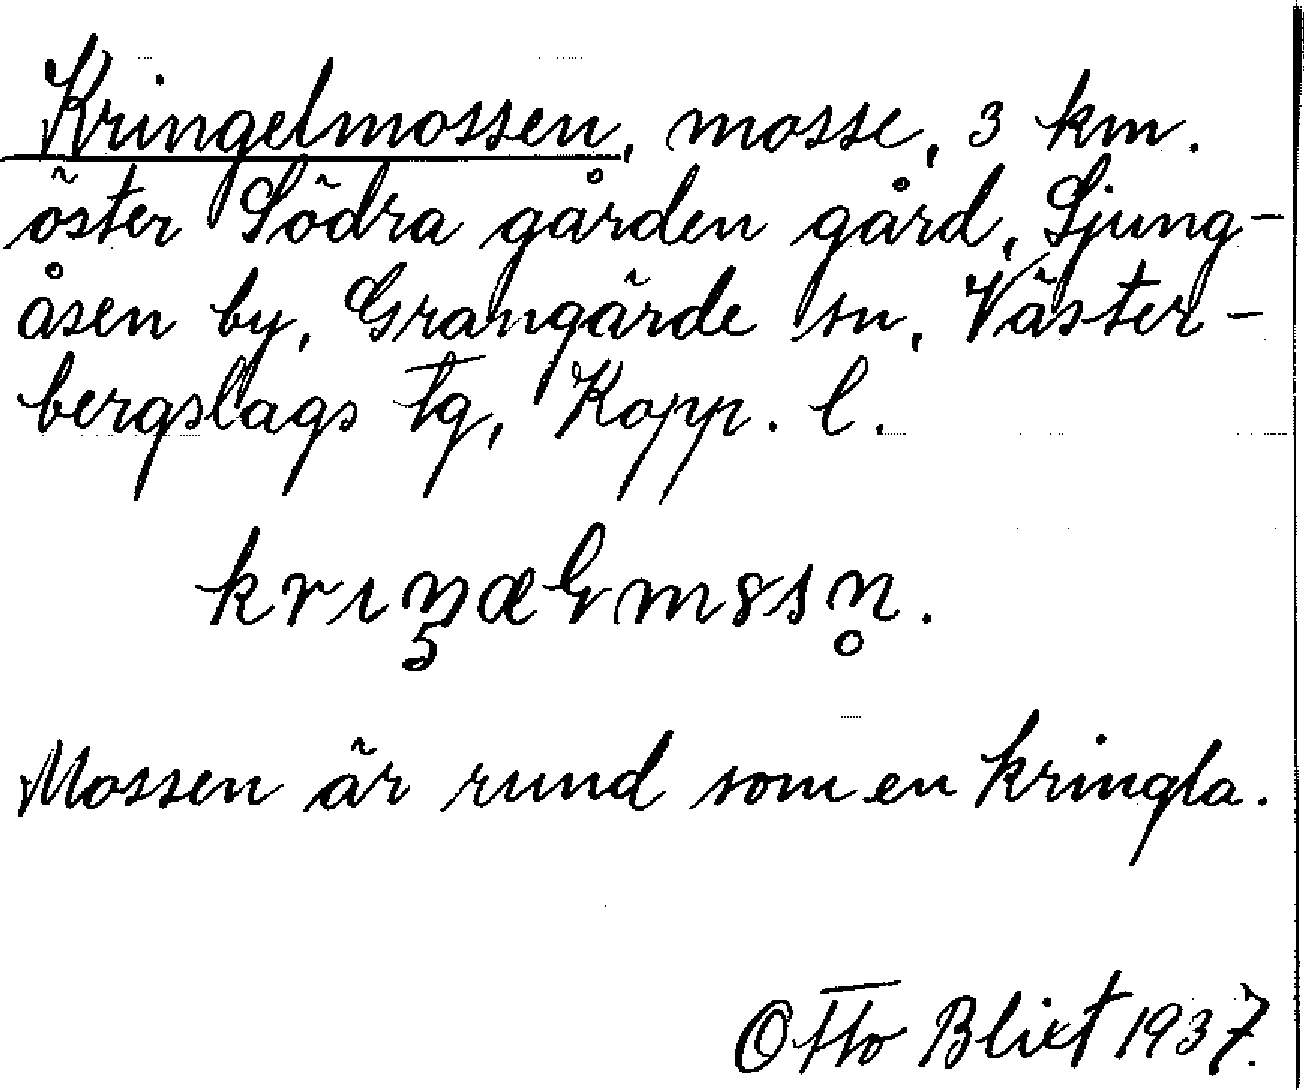 Kringelmossen, mosse, 3 km.
öster Södra gården gård, Ljung-
åsen by, Grangärde sn, Väster-
bergslags tg, Kopp. l.
Mossen är rund som en kringla.
Otto Blixt 1937.